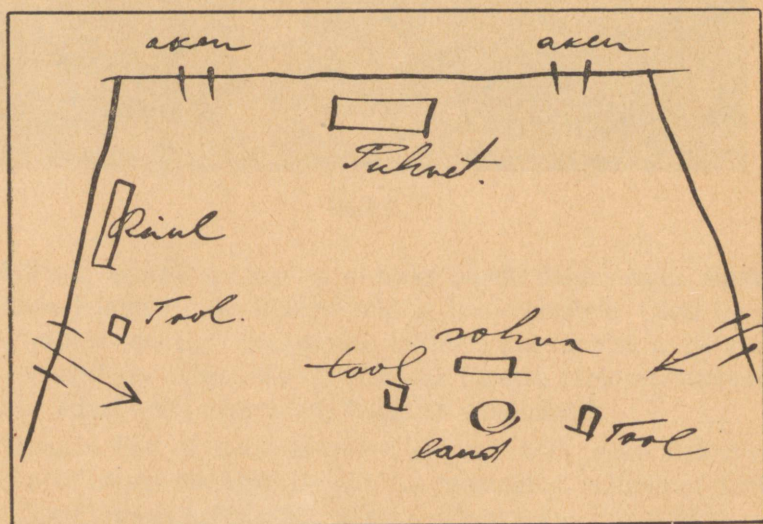 aken aken
Puhvet.
Riiul
Tool.
sohva
tool
Tool
laud